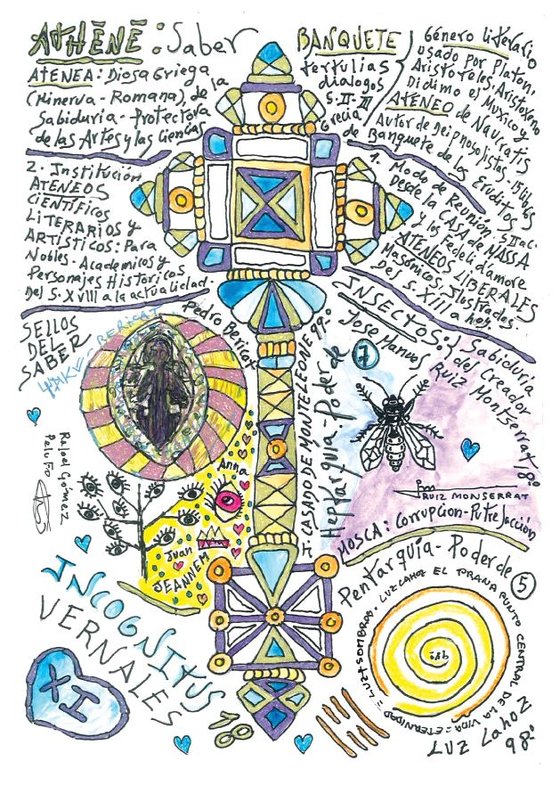 ATHĒNĒ: Saber
ATENEA: Diosa Griega
(Minerva - Romana), de la
Sabiduria - Protectora
de las Artes y las Ciencias
2. Institución
ATENEOS
CIENTÍFICOS
LITERARIOS y
ARTÍSTICOS: Para
Nobles - Academicos y
Personajes Históricos
Del S. XVIII a la actualidad.
BANQUETE
tertulias
dialogos
S. II - III
Grecia
Género Literario
usado por Platon,
Aristoteles, Aristoxeno
Didimo el Musico y
ATENEO de Naucratis
Autor de Deipnosofistas 15 libros
de Banquete de los Eruditos
1. Modo de Reunion S. II a.c.
Desde la CASA de MASSA
y los Fedeli d'amore
ATENEOS LIBERALES
Masónicos, Ilustrados
Del S. XIII a hoy.
SELLOS
DEL
SABER
BERICAT
Pedro Bericat
Rafael Gómez
Pelufo
Anna
Juan
JEANNEM
INCOGNITUS
VERNALES
18
XI
I. CASADO DE MONTELEONE 99º
Heptarquia - Poder de 7
INSECTOS: Sabiduria
del Creador
Jose Manuel Ruiz Montserrat 18º
RUIZ MONSERRAT
MOSCA: Corrupcion - Putrefacción
Pentarquia - Poder de 5
LUZ + SOMBRAS. LUZ LAHOZ EL PRANA PUNTO CENTRAL DE LA VIDA = ETERNIDAD
98º
LUZ LAHOZ
98º